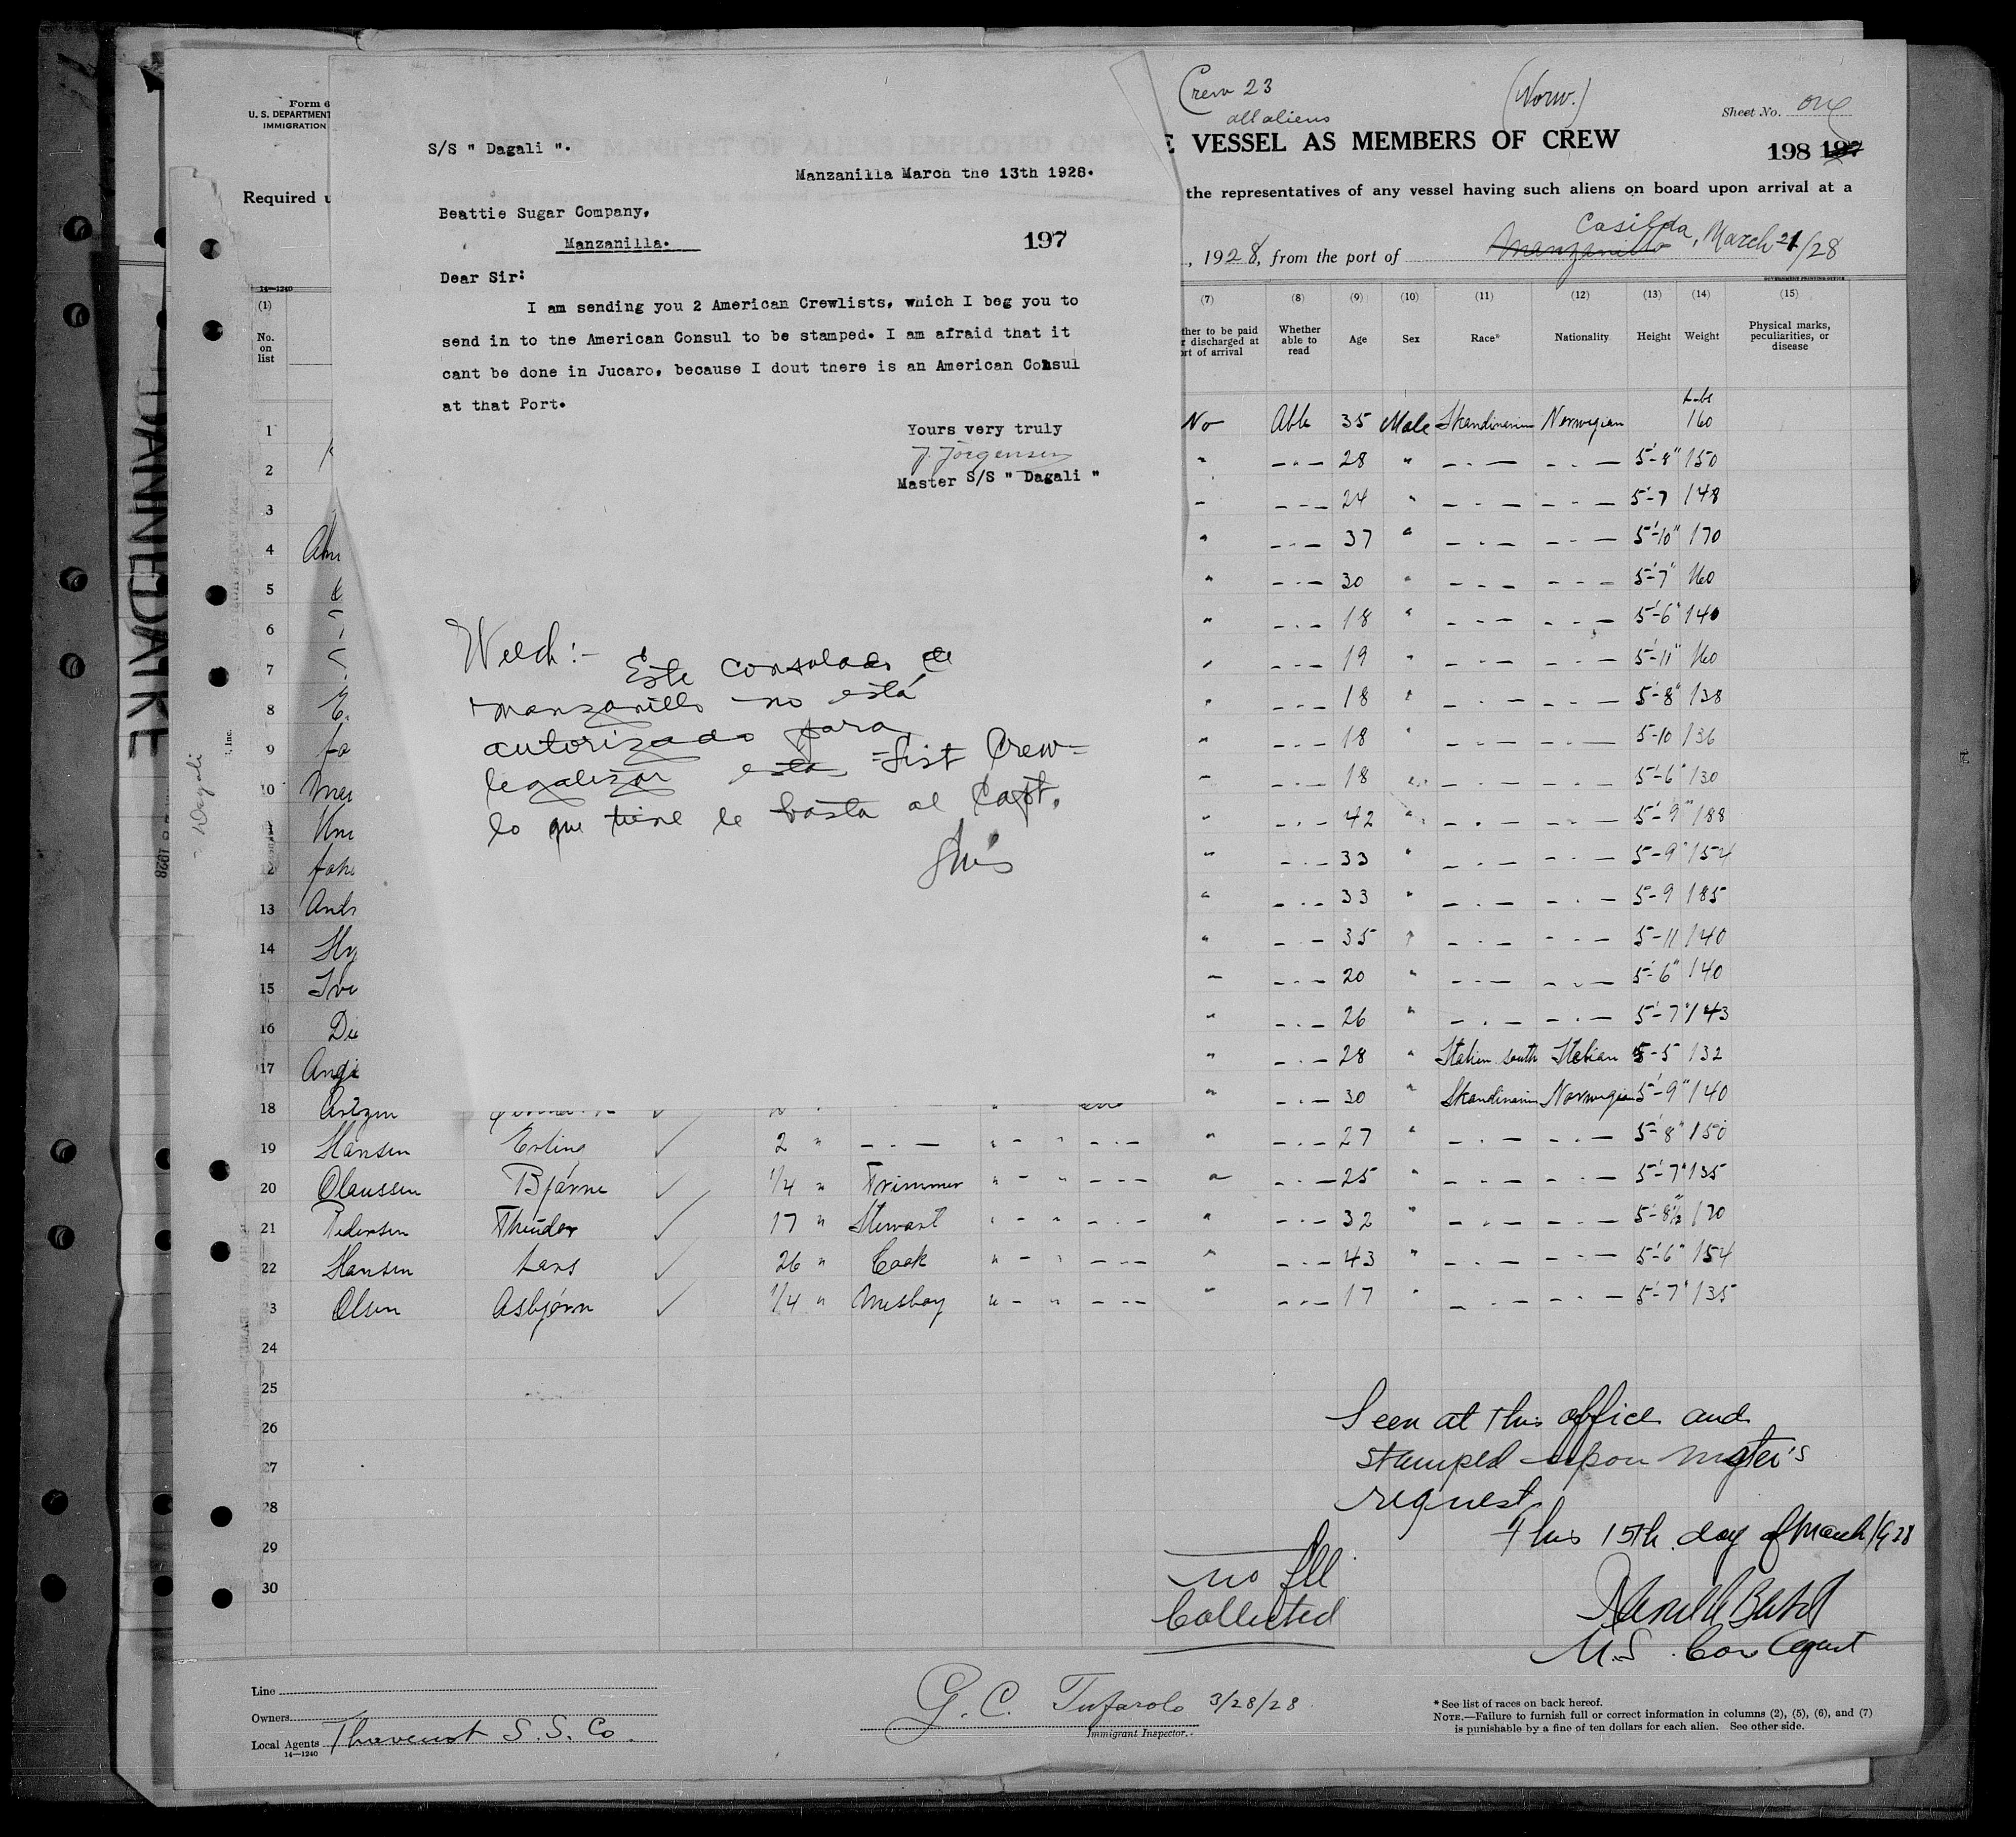 Form
U. S. DEPARTMENT
IMMIGRATION
Required
S/S " Dagali ".
Manzanilla March the 13th 1928.
Beattie Sugar Company,
Manzanilla.
197
Dear Sir:
I am sending you 2 American Crewlists, which I beg you to
send in to the American Consul to be stamped. I am afraid that it
cant be done in Jucaro, because I dout there is an American Consul
at that Port.
Yours very truly
J. Jörgensen
Master S/S " Dagali "
Welch:-
Este consulado de
manzanillo no está
autorizado para
legalizar esta List Crew=
lo que tiene le basta al Capt.
Crew 23
all aliens
(Norw.)
Sheet No. one
VESSEL AS MEMBERS OF CREW
198 197
the representatives of any vessel having such aliens on board upon arrival at a
Casilda, March 21/28
, 1928, from the port of Manzanillo
14—1240
GOVERNMENT PRINTING OFFICE
(1) (7) (8) (9) (10) (11) (12) (13) (14) (15)
No. on list
ther to be paid
discharged at
ort of arrival
Whether able to read
Age
Sex
Race*
Nationality
Height
Weight
Physical marks, peculiarities, or disease
Lbs
1 No Able 35 Male Skandinavian Norwegian 160
2 " — " — 28 " — " — — " — 5'-8" 150
3 " — " — 24 " — " — — " — 5'-7 148
4 " — " — 37 " — " — — " — 5'-10" 170
5 " — " — 30 " — " — — " — 5'-7" 160
6 " — " — 18 " — " — — " — 5'-6" 140
7 " — " — 19 " — " — — " — 5'-11" 160
8 E. " — " — 18 " — " — — " — 5'-8" 138
9 " — " — 18 " — " — — " — 5-10 136
10 " — " — 18 " — " — — " — 5'-6" 130
" — " — 42 " — " — — " — 5'-9" 188
" — " — 33 " — " — — " — 5-9" 154
13 Andr " — " — 33 " — " — — " — 5-9 185
14 " — " — 35 " — " — — " — 5-11 140
15 " — " — 20 " — " — — " — 5'-6" 140
16 " — " — 26 " — " — — " — 5'-7" 143
17 " — " — 28 " Italian south Italian 5-5 132
18 " — " — 30 " Skandinavian Norwegian 5'-9" 140
19 Hansen Erling ✓ 2 " — " — " — " — " — " — " — 27 " — " — — " — 5'-8" 150
20 Olaussen Bjarne ✓ 1/4 " Trimmer " — " — " — " — " — 25 " — " — — " — 5'-7" 135
21 Pedersen Theudor ✓ 17 " Stewart " — " — " — " — " — 32 " — " — — " — 5'-8½" 170
22 Hansen Lars ✓ 26 " Cook " — " — " — " — " — 43 " — " — — " — 5'-6" 154
3 Olsen Asbjørn ✓ 1/4 " Messboy " — " — " — " — " — 17 " — " — — " — 5'-7" 135
24
25
26
27
28
29
30
Seen at this office and
stamped upon master's
request,
This 15th day of March 1928
U.S. Con Agent
no fee
Collected
Line
Owners
Local Agents Thevenot S. S. Co.
14—1240
G. C. Tufarolo 3/28/28
Immigrant Inspector.
* See list of races on back hereof.
NOTE.—Failure to furnish full or correct information in columns (2), (5), (6), and (7)
is punishable by a fine of ten dollars for each alien. See other side.
Dagali
, Inc.
1928